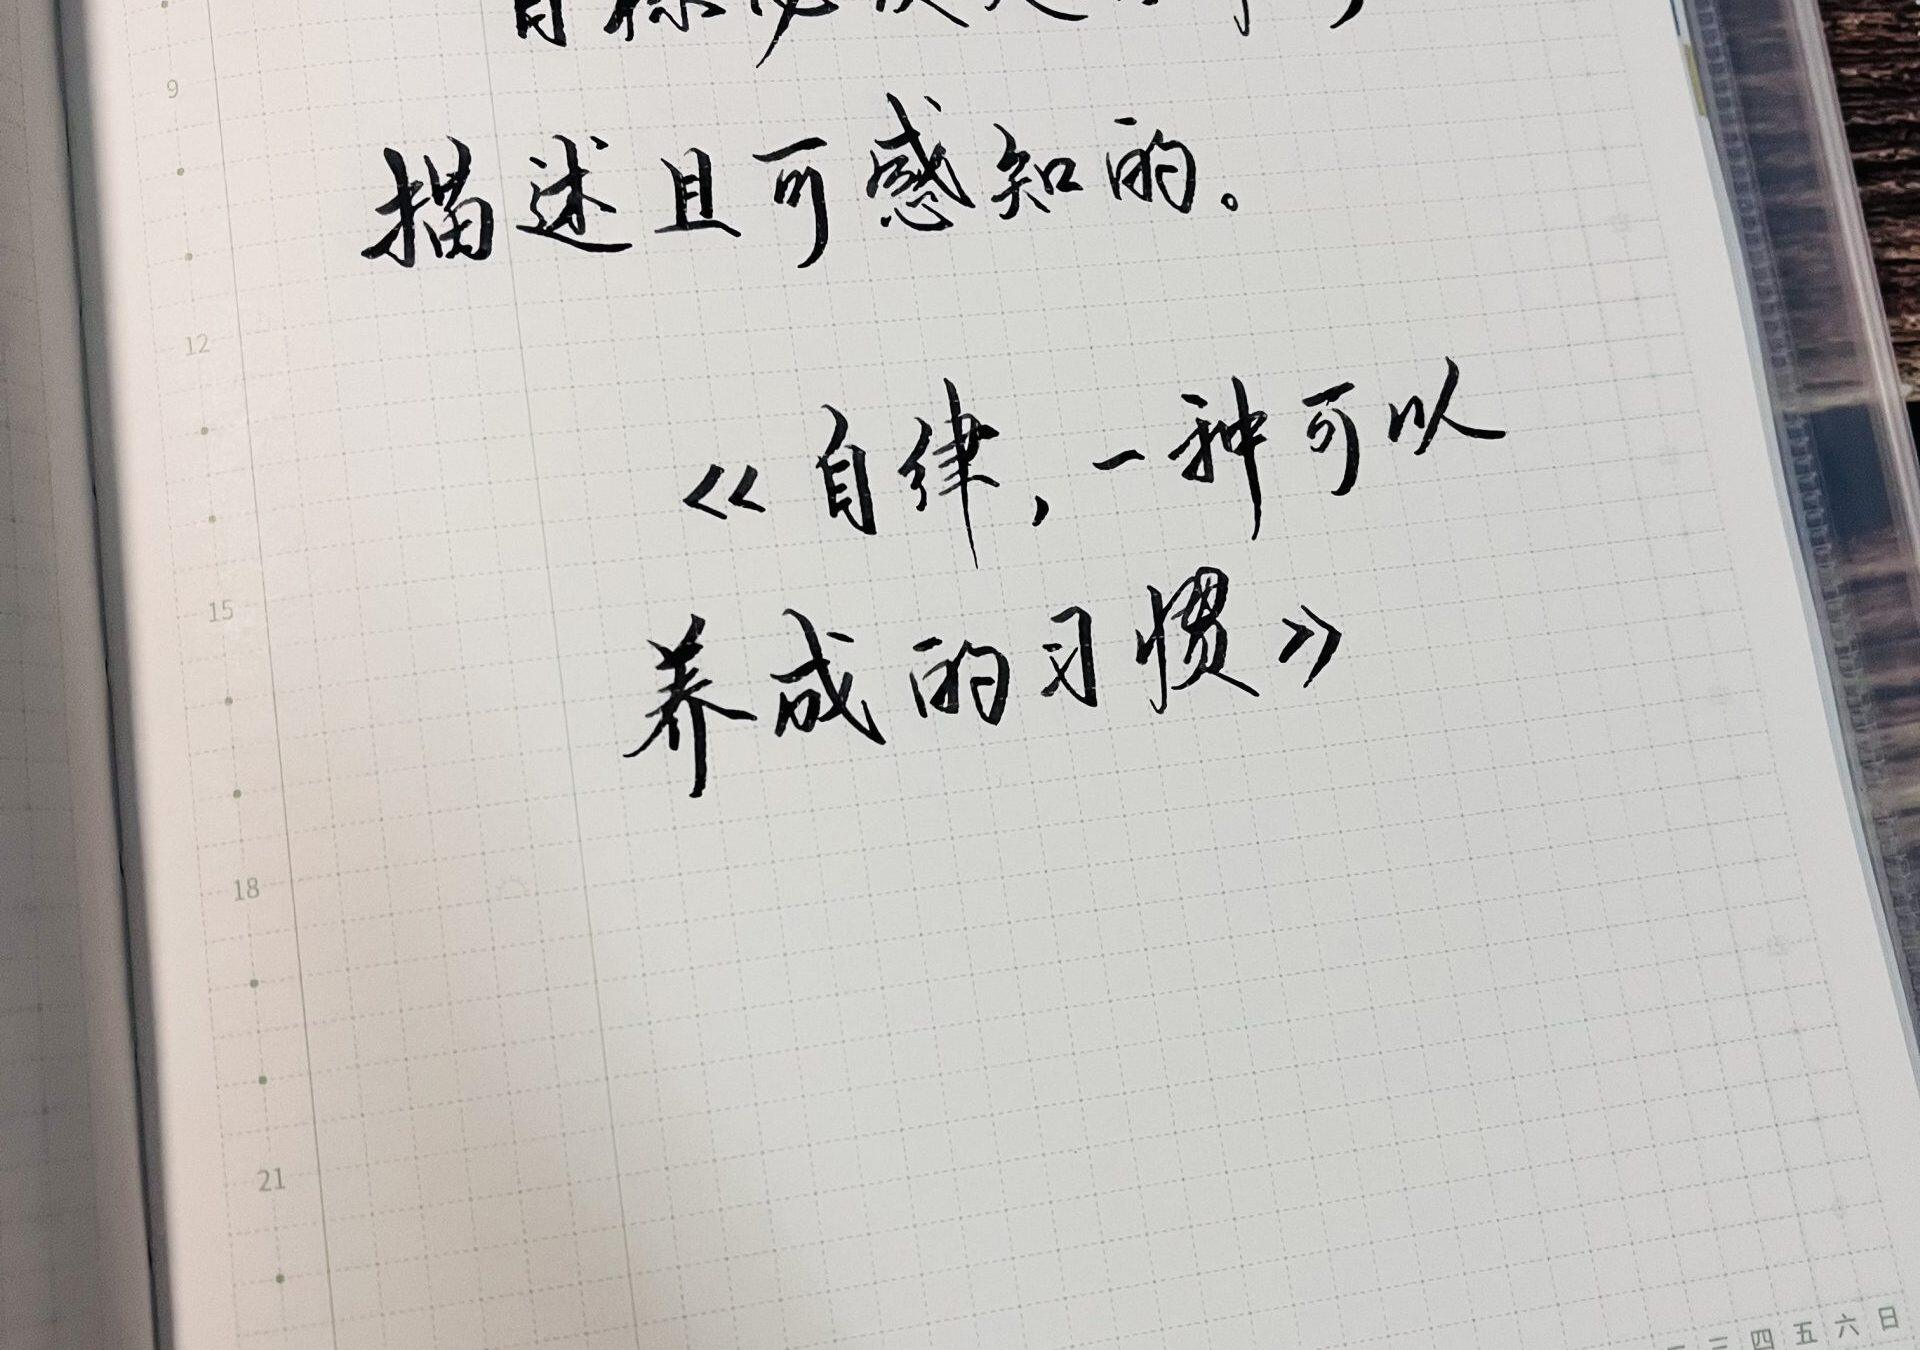 目标必须是
描述且可感知的。
《自律，一种可以
养成的习惯》
9
12
15
18
21
三 四 五 六 日